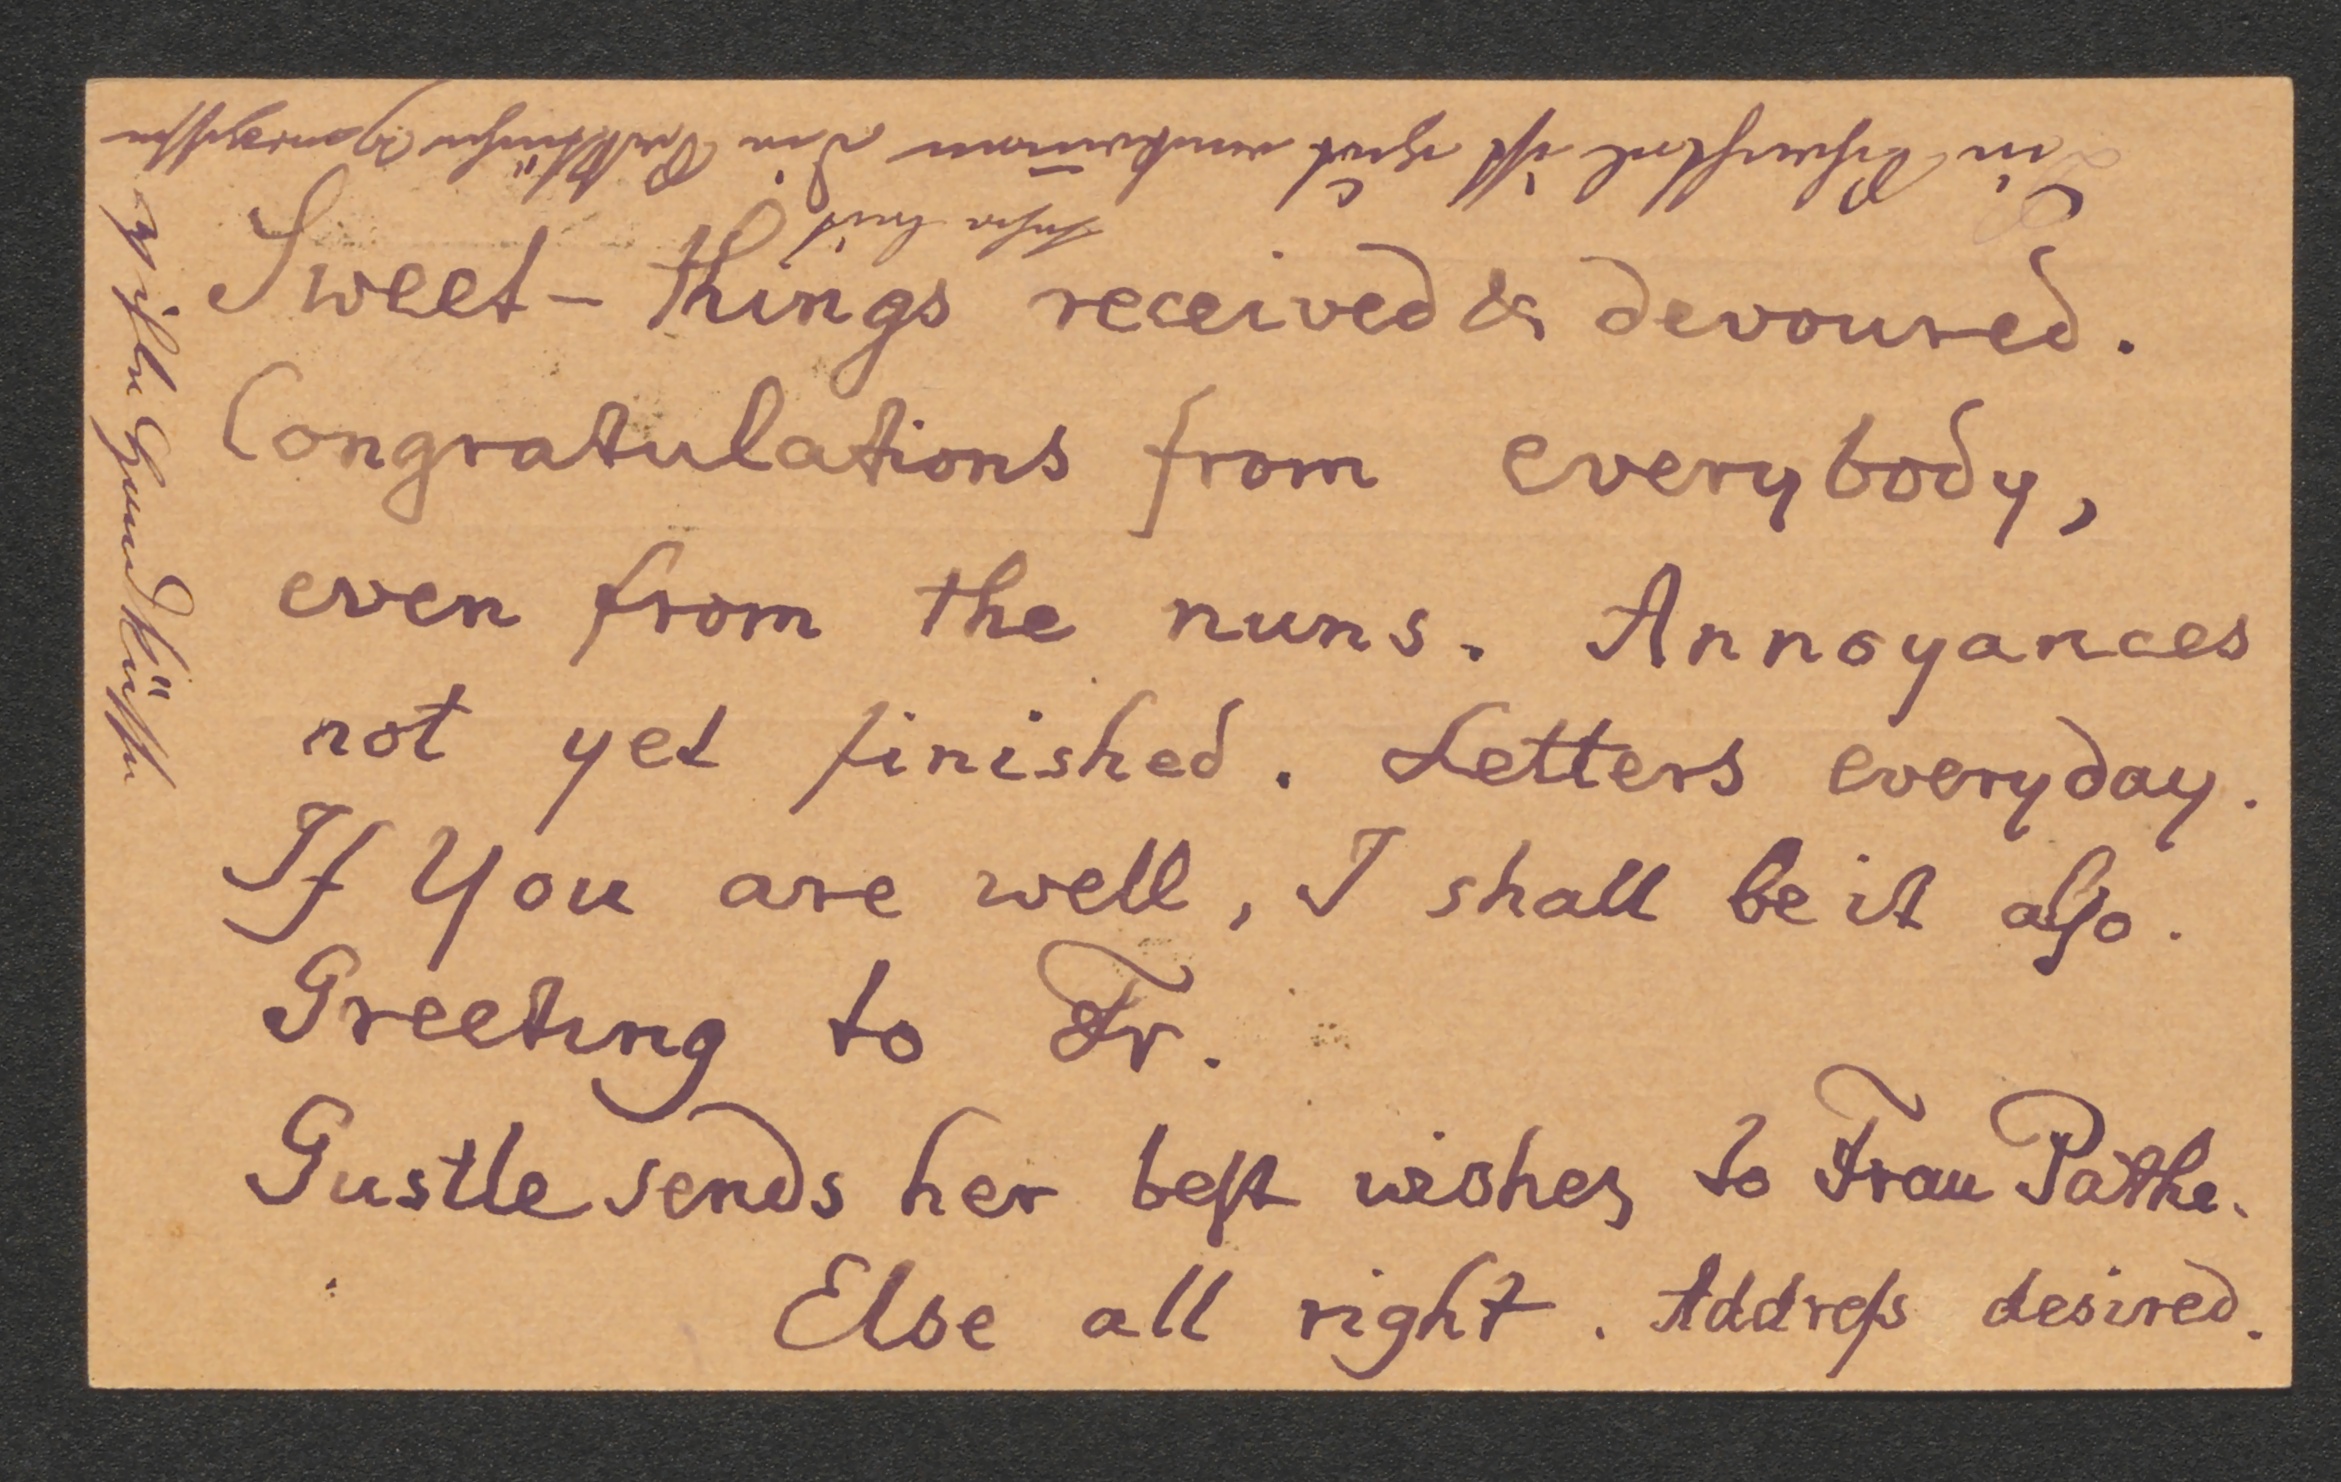 Sweet-things received & devoured.
Congratulations from everybody,
even from the nuns. Annoyances
not yet finished. Letters everyday.
If You are well, I shall be it also.
Greeting to Fr.
Gustle sends her best wishes to Frau Pathe.
Else all right. Address desired.
Die ist gut die